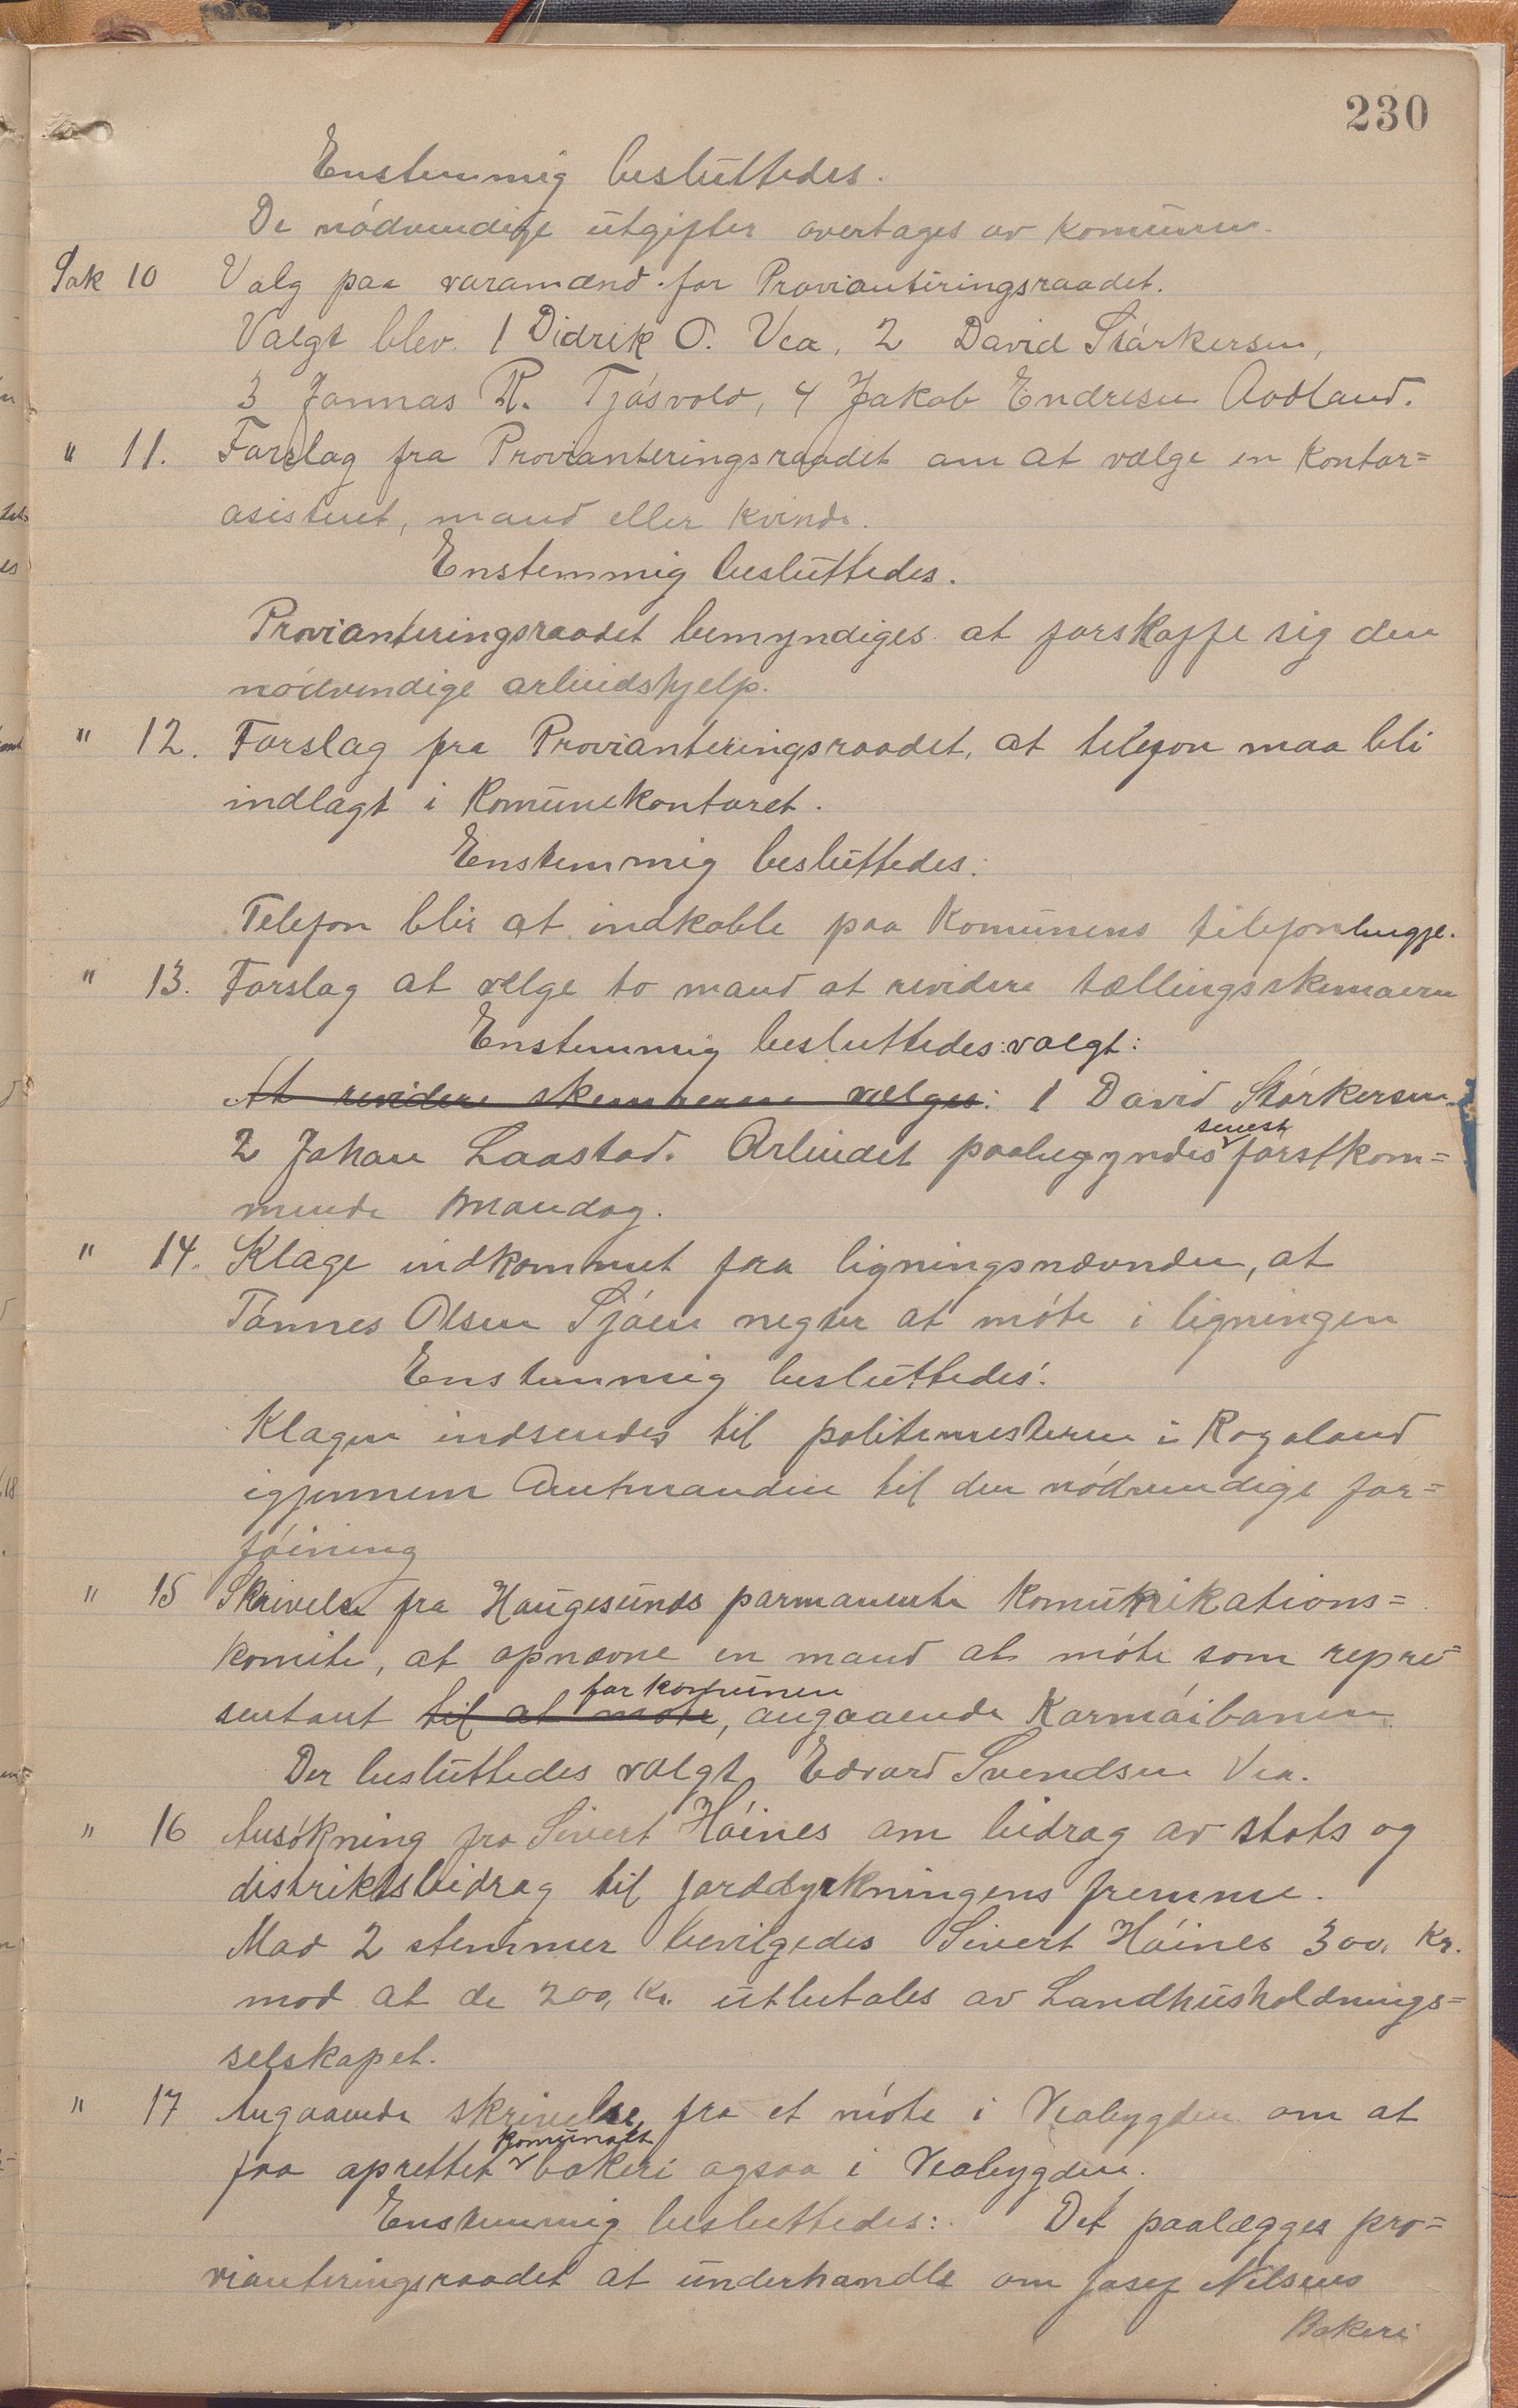 230
Enstemmig besluttedes.
De nödvendige utgifter overtages av komunen.
Sak 10 Valg paa varamænd for Provianteringsraadet.
Valgt blev. 1 Didrik O. Vea, 2 David Störkersen,
3 Jonnas R. Tjösvold, 4 Jakob Endresen Aadland.
" 11. Forslag fra Provianteringsraadet om at vælge en kontor=
asistent, mand eller kvinde.
Enstemmig besluttedes.
Provianteringsraadet bemyndiges at forskaffe sig den
nödvendige arbeidshjelp.
" 12. Forslag fra Provianteringsraadet, at telefon maa bli
indlagt i Komunekontoret.
Enstemmig besluttedes:
Telefon blir at indkoble paa Komunens
" 13. Forslag at velge to mand at revidere tællingsskemaern
Enstemmig besluttedes: valgt:
At revidere skemaerne vælges: 1 David Störkersen
2 Johan Laastad. Arbeidet paabegyndes senest förstkom=
mende mandag.
" 14. Klage indkommet fra ligningsnævnden, at
Tönnes Olsen Sjöen negter at möte i ligningen
Enstemmig besluttedes:
Klagen indsendes til politimesteren i Rogaland
igjennem Amtmanden til den nödvendige for=
föining
" 15 Skrivelse fra Haugesunds parmanente Komunikations=
komite, at opnævne en mand at möte som repre=
sentant til at möte, for komunen angaaende Karmöibanen.
Der besluttedes valgt Edvard Svendsen Vea.
" 16 Ansökning fra Sivert Höines om bidrag av stats og
distriktsbidrag til jorddyrkningens fremme.
Mod 2 stemmer bevilgedes Sivert Höines 300, Kr.
mod at de 200, Kr. utbetales av Landhusholdnings=
selskapet.
" 17 Angaaende skrivelse, fra et möte i Veabygden om at
faa oprettet komunalt bakeri ogsaa i Veabygden.
Enstemmig besluttedes: Det paalægges pro=
vianteringsraadet at underhandle om Josef Nilsens
Bakeri